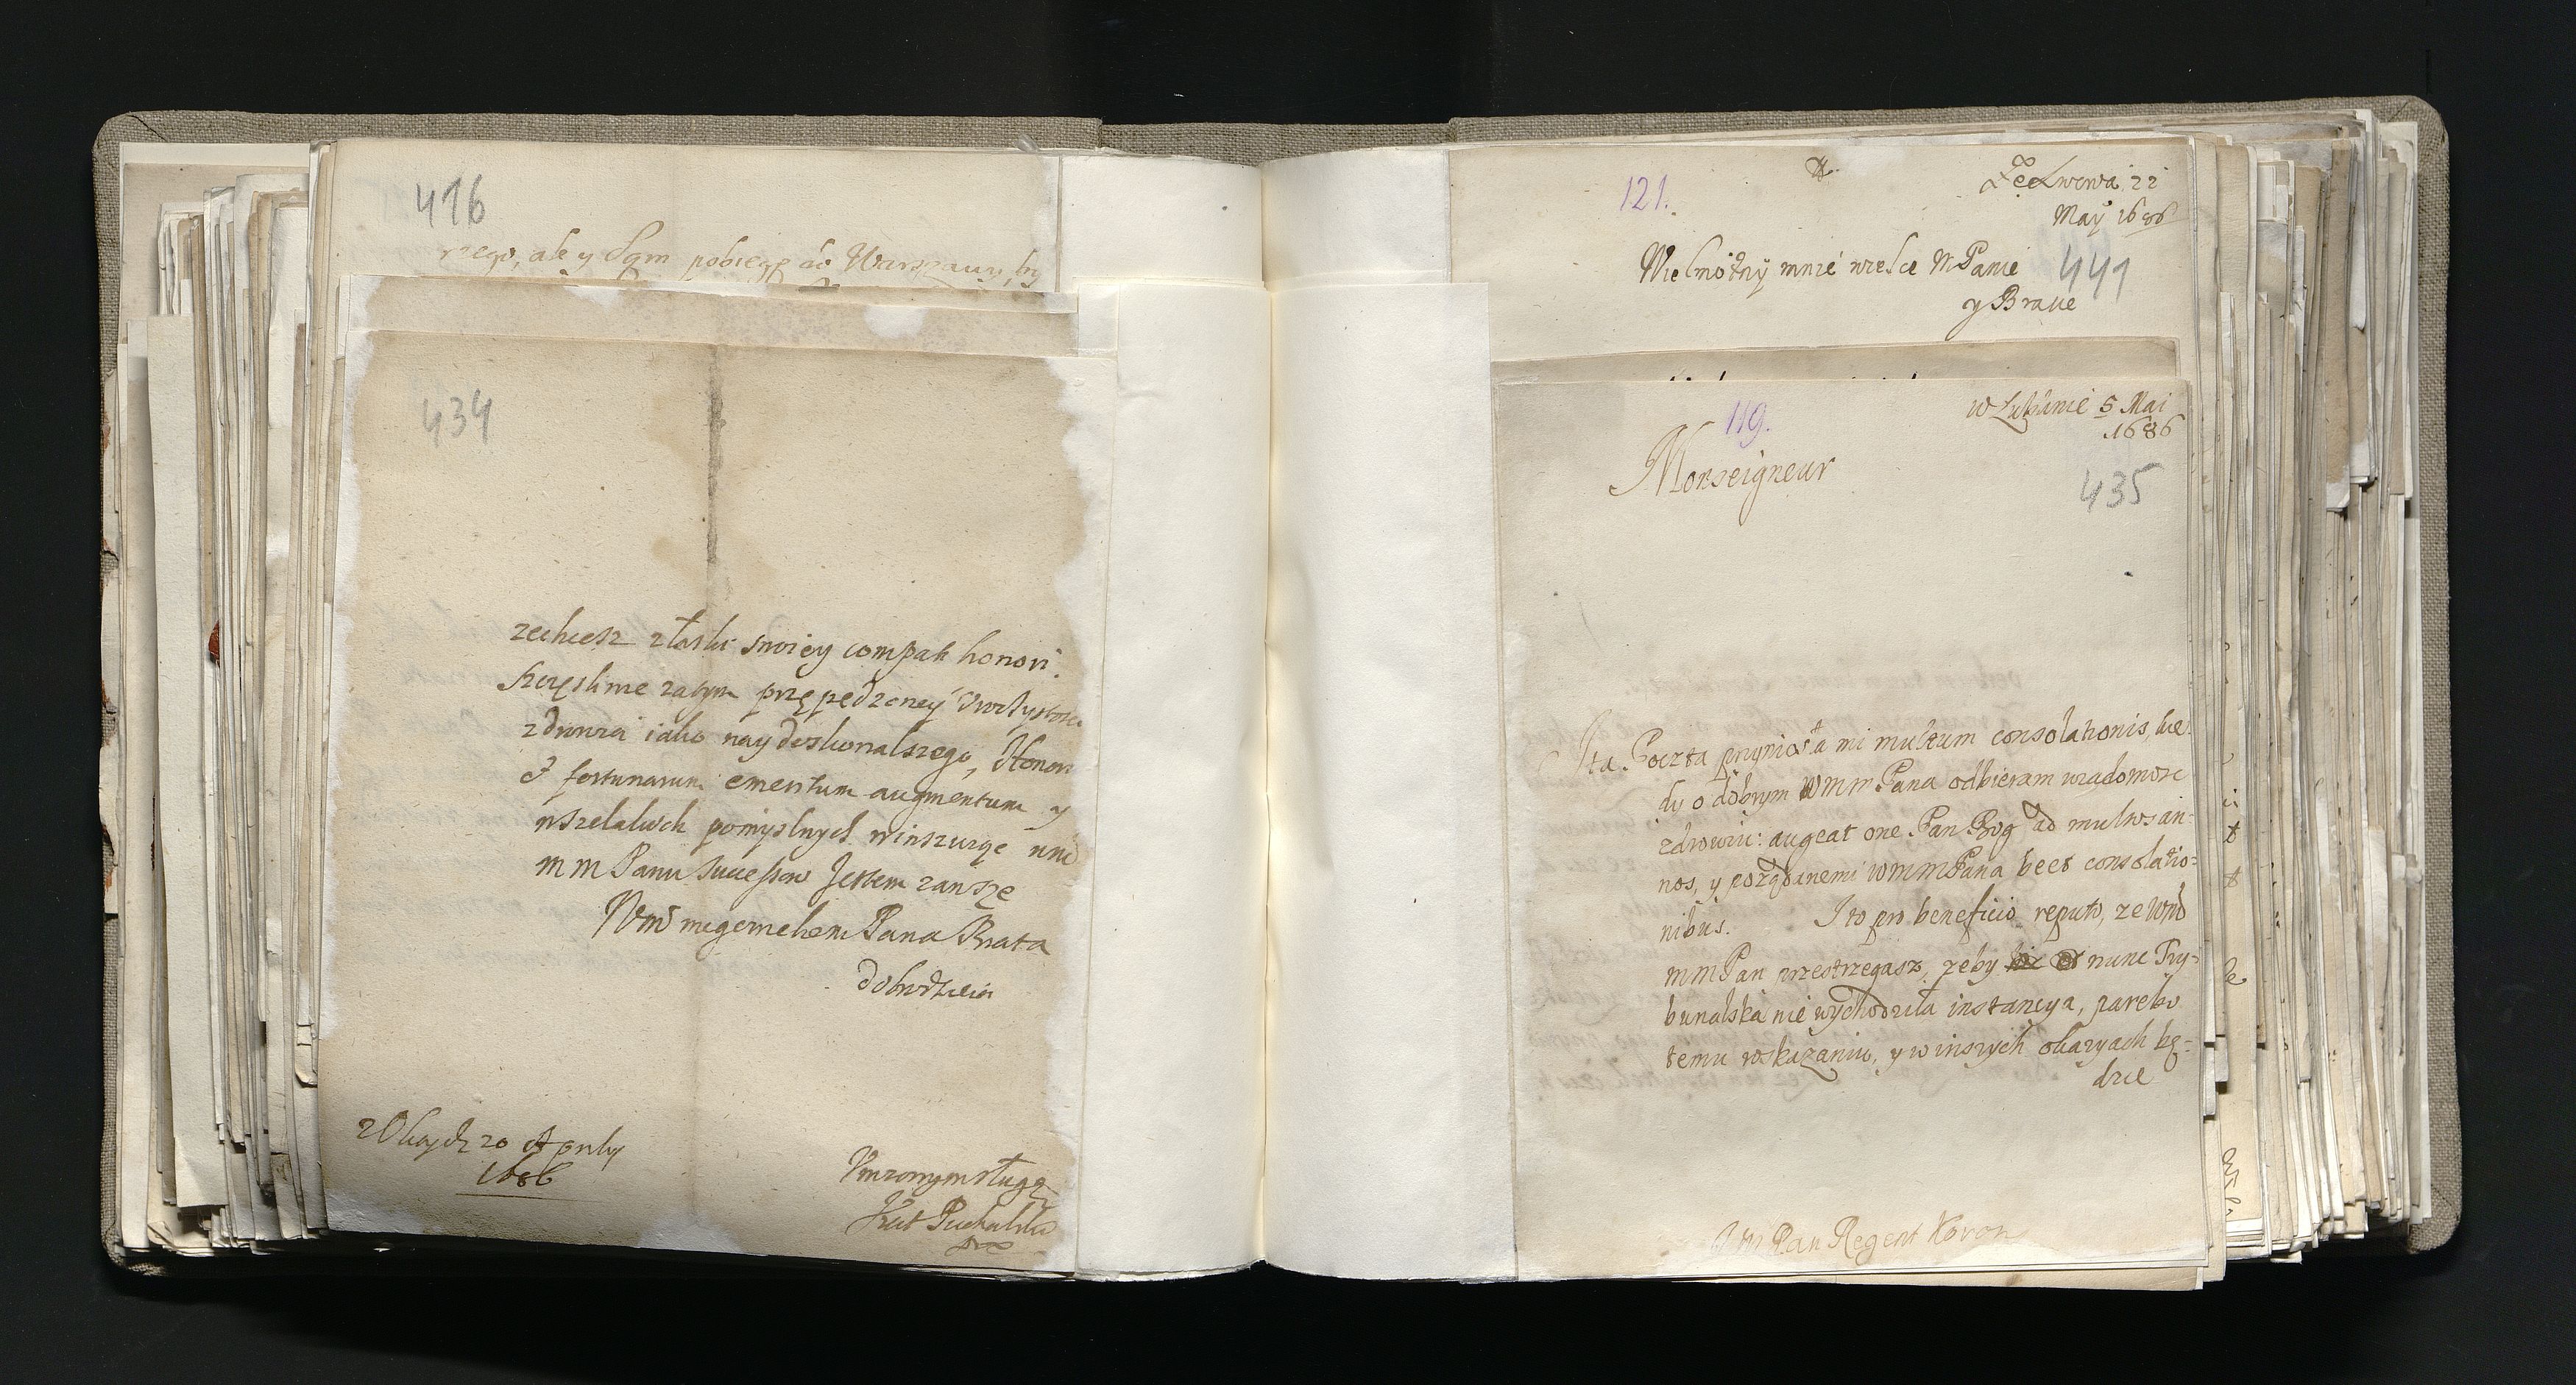 416
rzego, ale y Sam pobiegę do Warszawy, by
434
zechcesz z łaski swoiey compati honori.
Szczęsliwie zatym przepędzoney Uroczystosci
zdrowia iako naydoskonalszego, Honor
et fortunarum emeritum augmentum y
wszelakich pomyslnych winszuiąc
m m Panu successow Jestem zawsze
Pana Brata
dobrodzieia
20 Aprily
1686
Unizonym sługą
121.
Ze Lwowa 22
May 1686
Wielmożny mnie wielce MPanie
y Bracie
441
119.
w Lublinie 5 Mai
1686
Monseigneur
435
Ita Poczta przyniosła mi multum consolationis, kie-
dy o dobrym WMM Pana odbieram wiadomosc
zdrowiu: augeat one Pan Bog ad multos an-
nos, y pożądanemi WMMPana beet consolatio-
nibus. I to pro beneficio reputo, ze WMC
mmPan przestrzegasz, zeby nunc Try-
bunalska nie wychodziła instancya, parebo
temu wskazaniu, y w inszych okazyach bę-
dzie
Pan Regent Koron